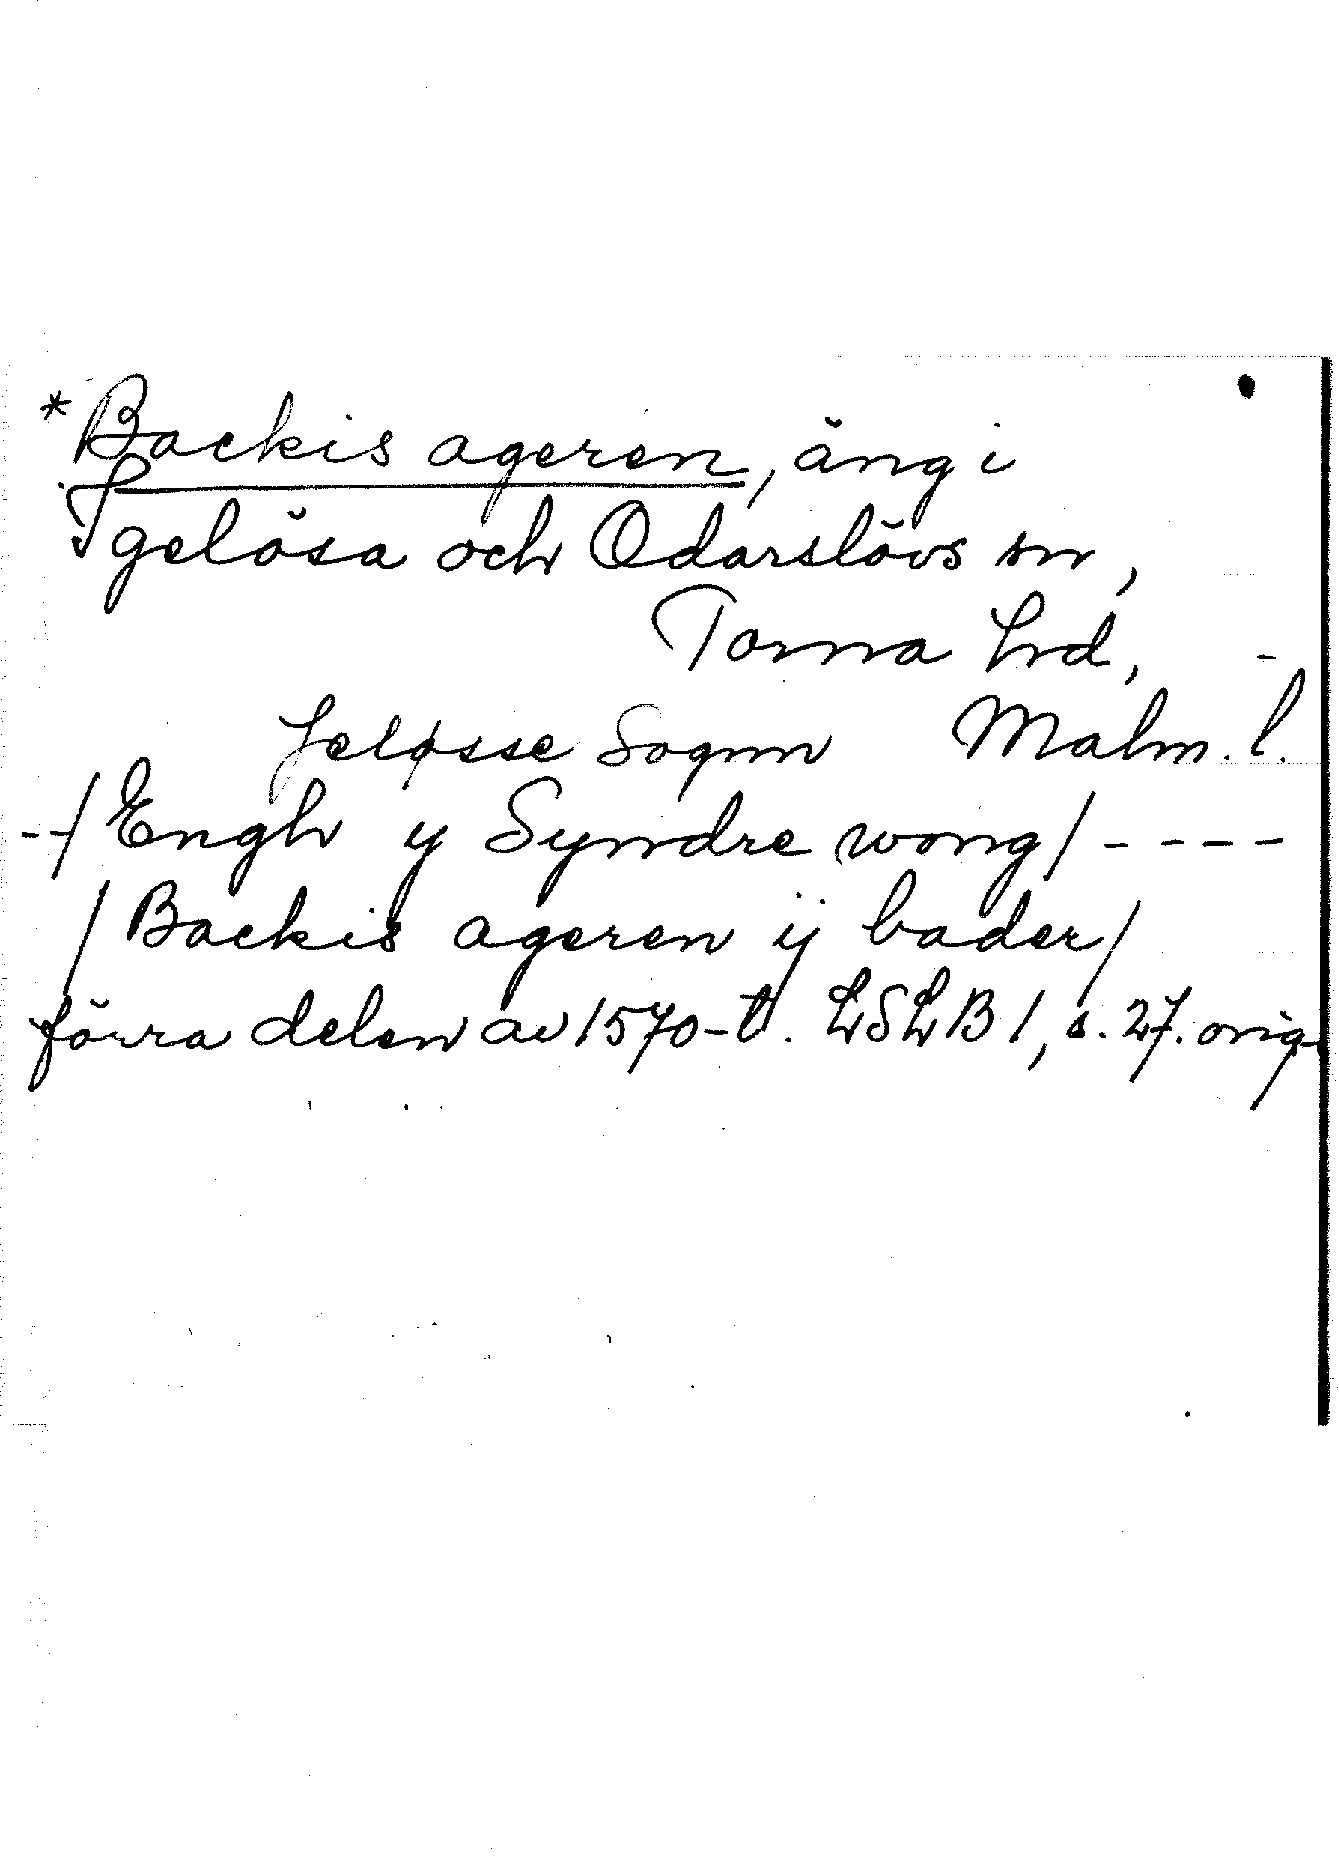 *Backis ageren, äng i
Igelösa och Odarslövs sn,
Torna hd,
Jeløsse Sognn Malm. l.
--/Engh y Syndre wong/----
/Backis ageren ÿ bader/
förra delen av 1570-t. LSLB 1, s. 27. orig.